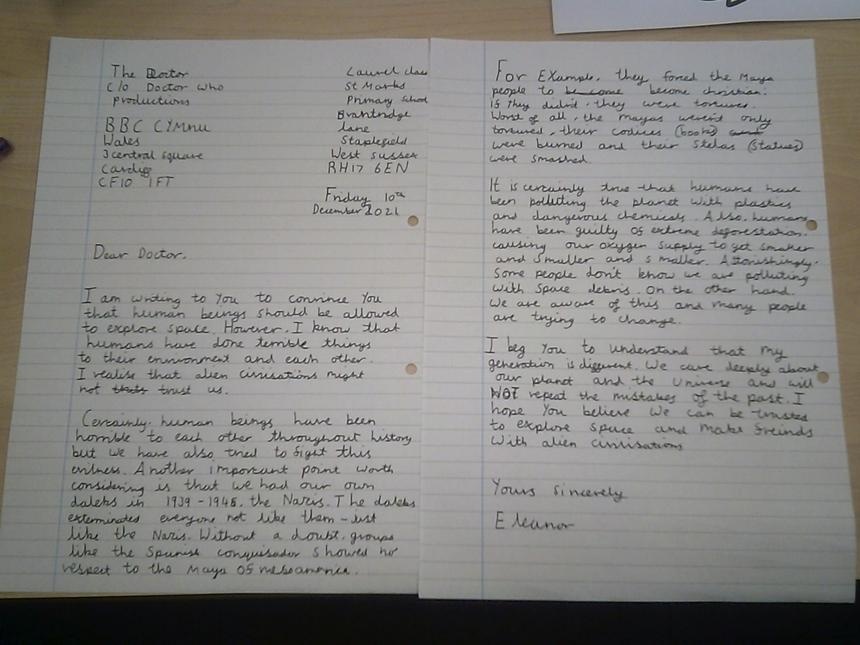 The Doctor
C/o Doctor Who
productions
BBC CYMRU
Wales
3 central square
Cardiff
CF10 1FT
Laurel class
St Marks
Primary School
Brantridge
lane
Staplefield
West Sussex
RH17 6EN
Friday 10th
December 2021
Dear Doctor,
I am writing to you to convince you
that human beings should be allowed
to explore space. However, I know that
humans have done terrible things
to their environment and each other.
I realise that alien civilisations might
not trust us.
Certainly, human beings have been
horrible to each other throughout history
but we have also tried to fight this
evilness. Another important point worth
considering is that we had our own
daleks in 1939-1945, the Nazis. The daleks
exterminates everyone not like them - Just
like the Nazis. Without a doubt, groups
like the Spanish conquisador showed no
respect to the Maya of mesoamerica.
For Example, they forced the Maya
people to become christian.
if they didn't, they were tortured.
Worst of all, the Mayas weren't only
tortured, their codices (books)
were burned and their Stelas (statues)
were smashed.
It is certainly true that humans have
been polluting the planet with plastics
and dangerous chemicals. Also, humans
have been guilty of extreme deforestation.
causing our oxygen supply to get smaller
and smaller and smaller. Astonishingly,
some people don't know we are polluting
with space debris. On the other hand,
We are aware of this and many people
are trying to change.
I beg you to understand that my
generation is different. We care deeply about
our planet and the Universe and will
NOT repeat the mistakes of the past. I
hope you believe we can be trusted
to explore space and make freinds
with alien civilisations
Yours sincerely
Eleanor